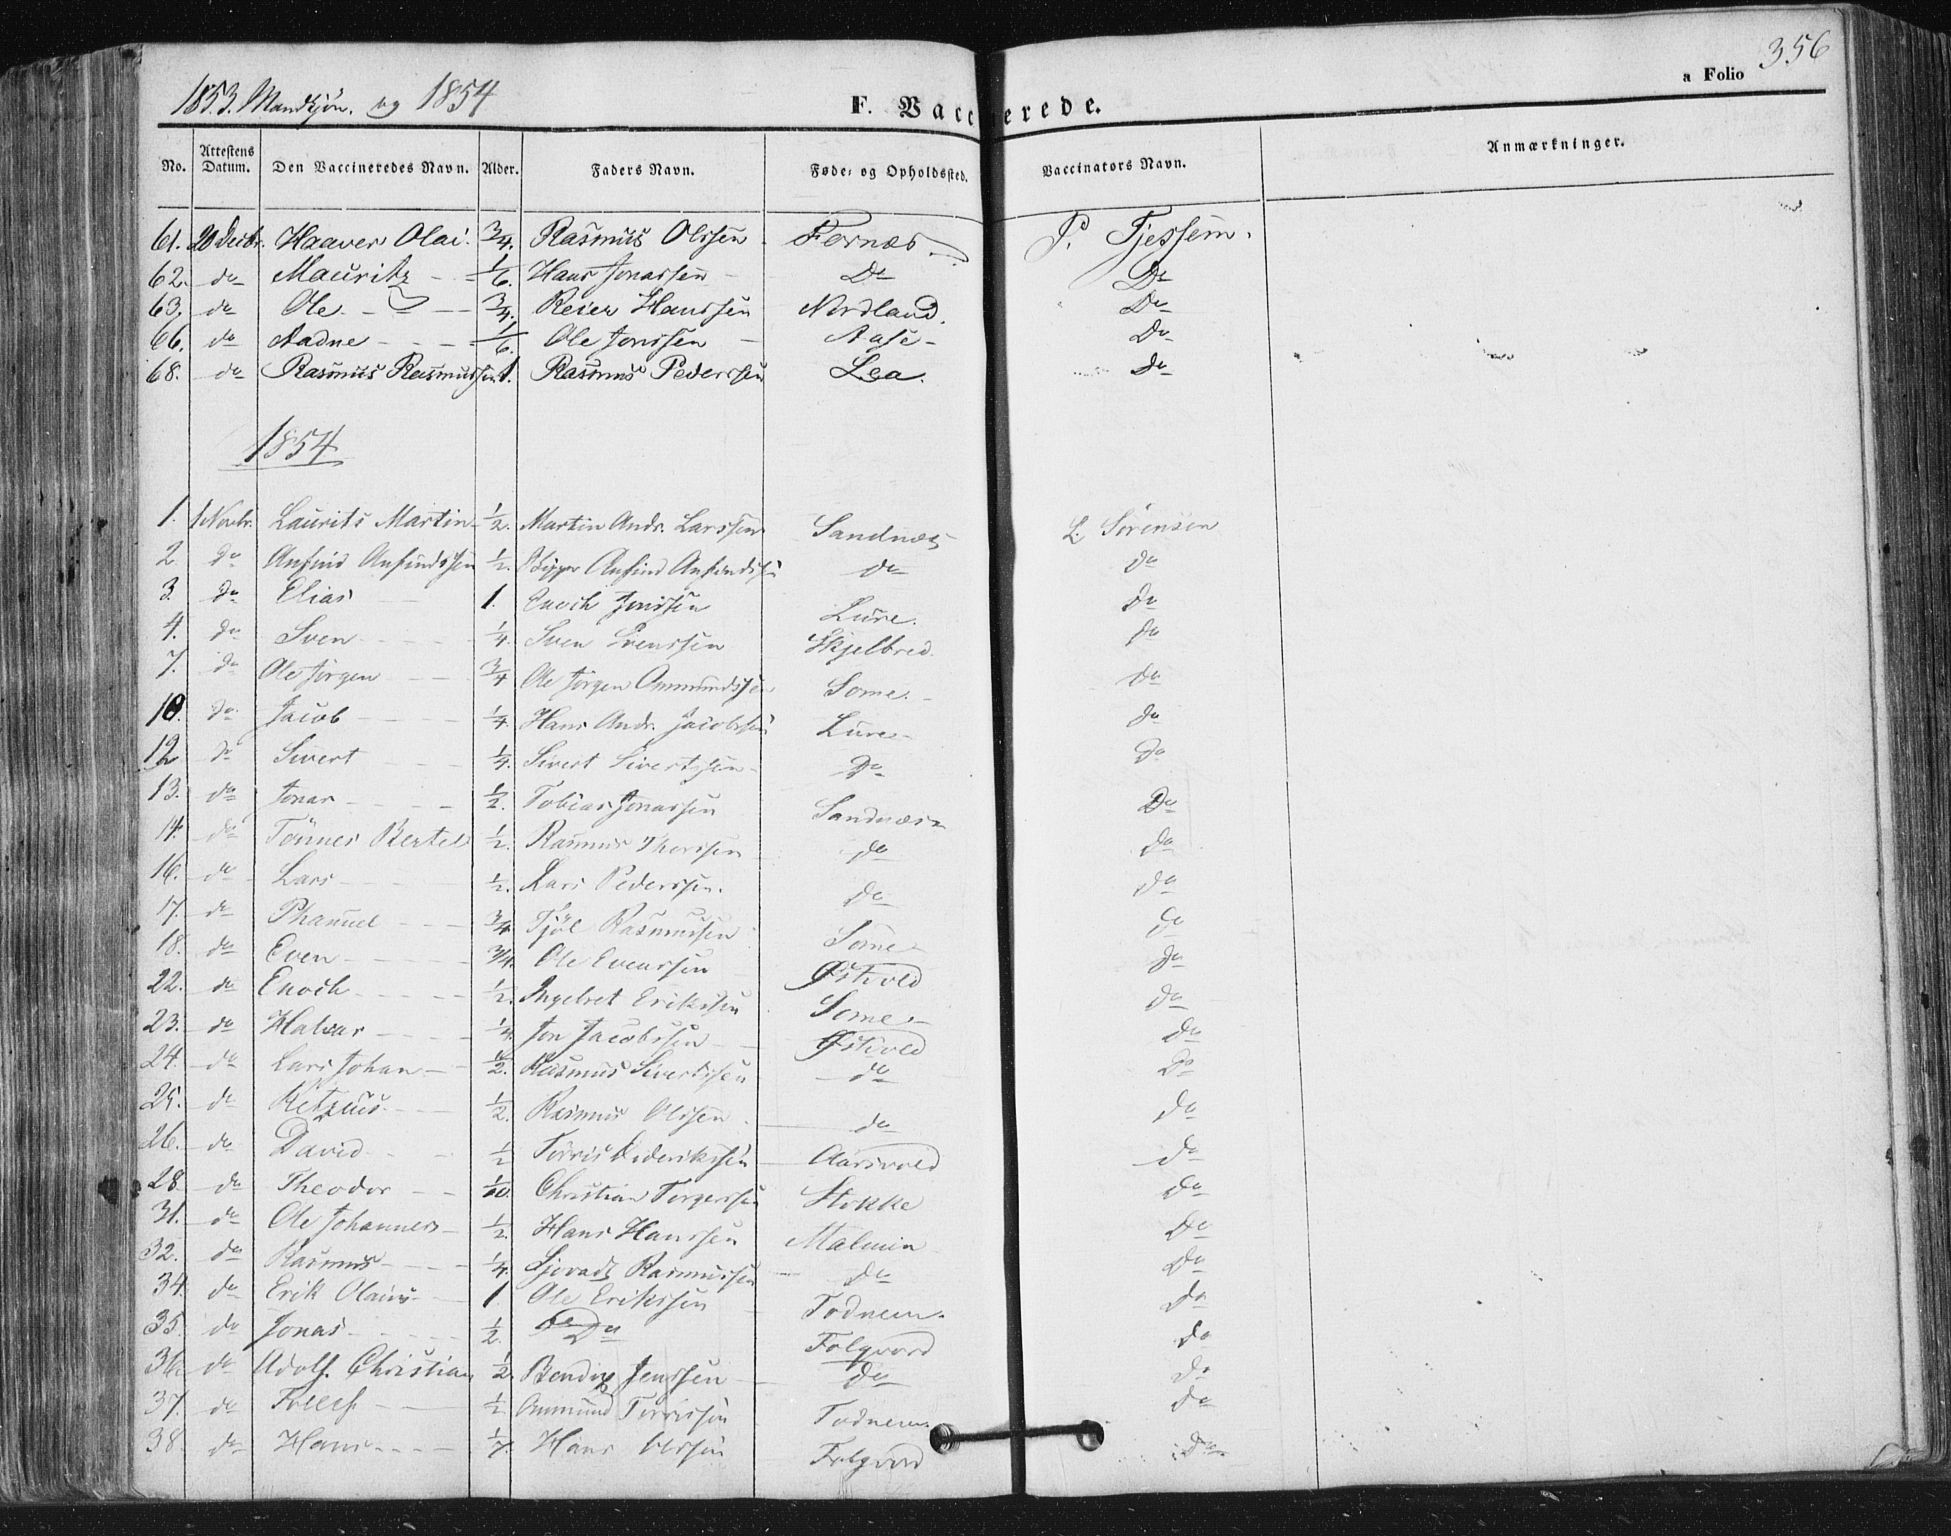 1853. Mandkjøn. og 1854
F. Vaccinerede.
a Folio 356
No. Attestens Datum. Den Vaccineredes Navn. Alder. Faders Navn. Føde- og Opholdssted. Vaccinators Navn. Anmærkninger.
61. 20 Decbr. Haaver Olai. 3/4. Rasmus Olssen Fornæs P. Tjessem.
62. do Mauritz 1/6. Hans Jonassen Do Do
63. do Ole 3/4. Reier Hanssen Nordland. Do
66. do Aadne 1/6. Ole Jonssen Aase Do
68. do Rasmus Rasmussen 1. Rasmus Pederssen Lea. Do
1854
1. 1 Novbr. Laurits Martin 1/2. Martin Andr. Larssen Sandnæs L. Sørensen
2 do Anfind Anfindssen 1/2. Skipper Anfind Anfindssen do do
3. do Elias 1. Enoch Jonssen Lure. do
4. do Sven 1/4. Sven Svenssen Skjelbred. do
7. do Ole Jørgen 3/4 Ole Jørgen Ommundssen Some. do
10. do Jacob 1/4. Hans Andr. Jacobssen Lure do
12 do Sivert 1/4. Sivert Sivertssen Do do
13. do Jonas 1/2. Tobias Jonassen Sandnæs Do
14. do Tønnes Bertel 1/2. Rasmus Thorssen do do
16. do Lars 1/2. Lars Pederssen. do do
17. do Phanuel 3/4. Tjøl Rasmussen Some do
18. do Even 3/4. Ole Evenssen Østvold do
22. do Enoch 1/2. Ingebret Erikssen Some do
23. do Halvar 1/4. Jon Jacobssen Østvold do
24. do Lars Johan 1/2. Rasmus Sivertssen do Do
25. do Retzius 1/2. Rasmus Olssen do do
26. do David 1/2 Tørris Frederikssen Aarsvold do
28 do Theodor 1/10. Christian Torgerssen Stokke do
31. do Ole Johannes 1/2. Hans Hanssen Malmin Do
32. do Rasmus 1/4. Sjovadt Rasmussen do Do
34. do Erik Olaus 1. Ole Erikssen Todnem. do
35. do Jonas 1/2. Do Folqvord do
36. do Adolf. Christian 1/2. Bendix Jenssen Do do
37. do 1/2. Ommund Tørrissen Todnem do
38. do Hans 1/7. Hans Olssen Folqvord Do